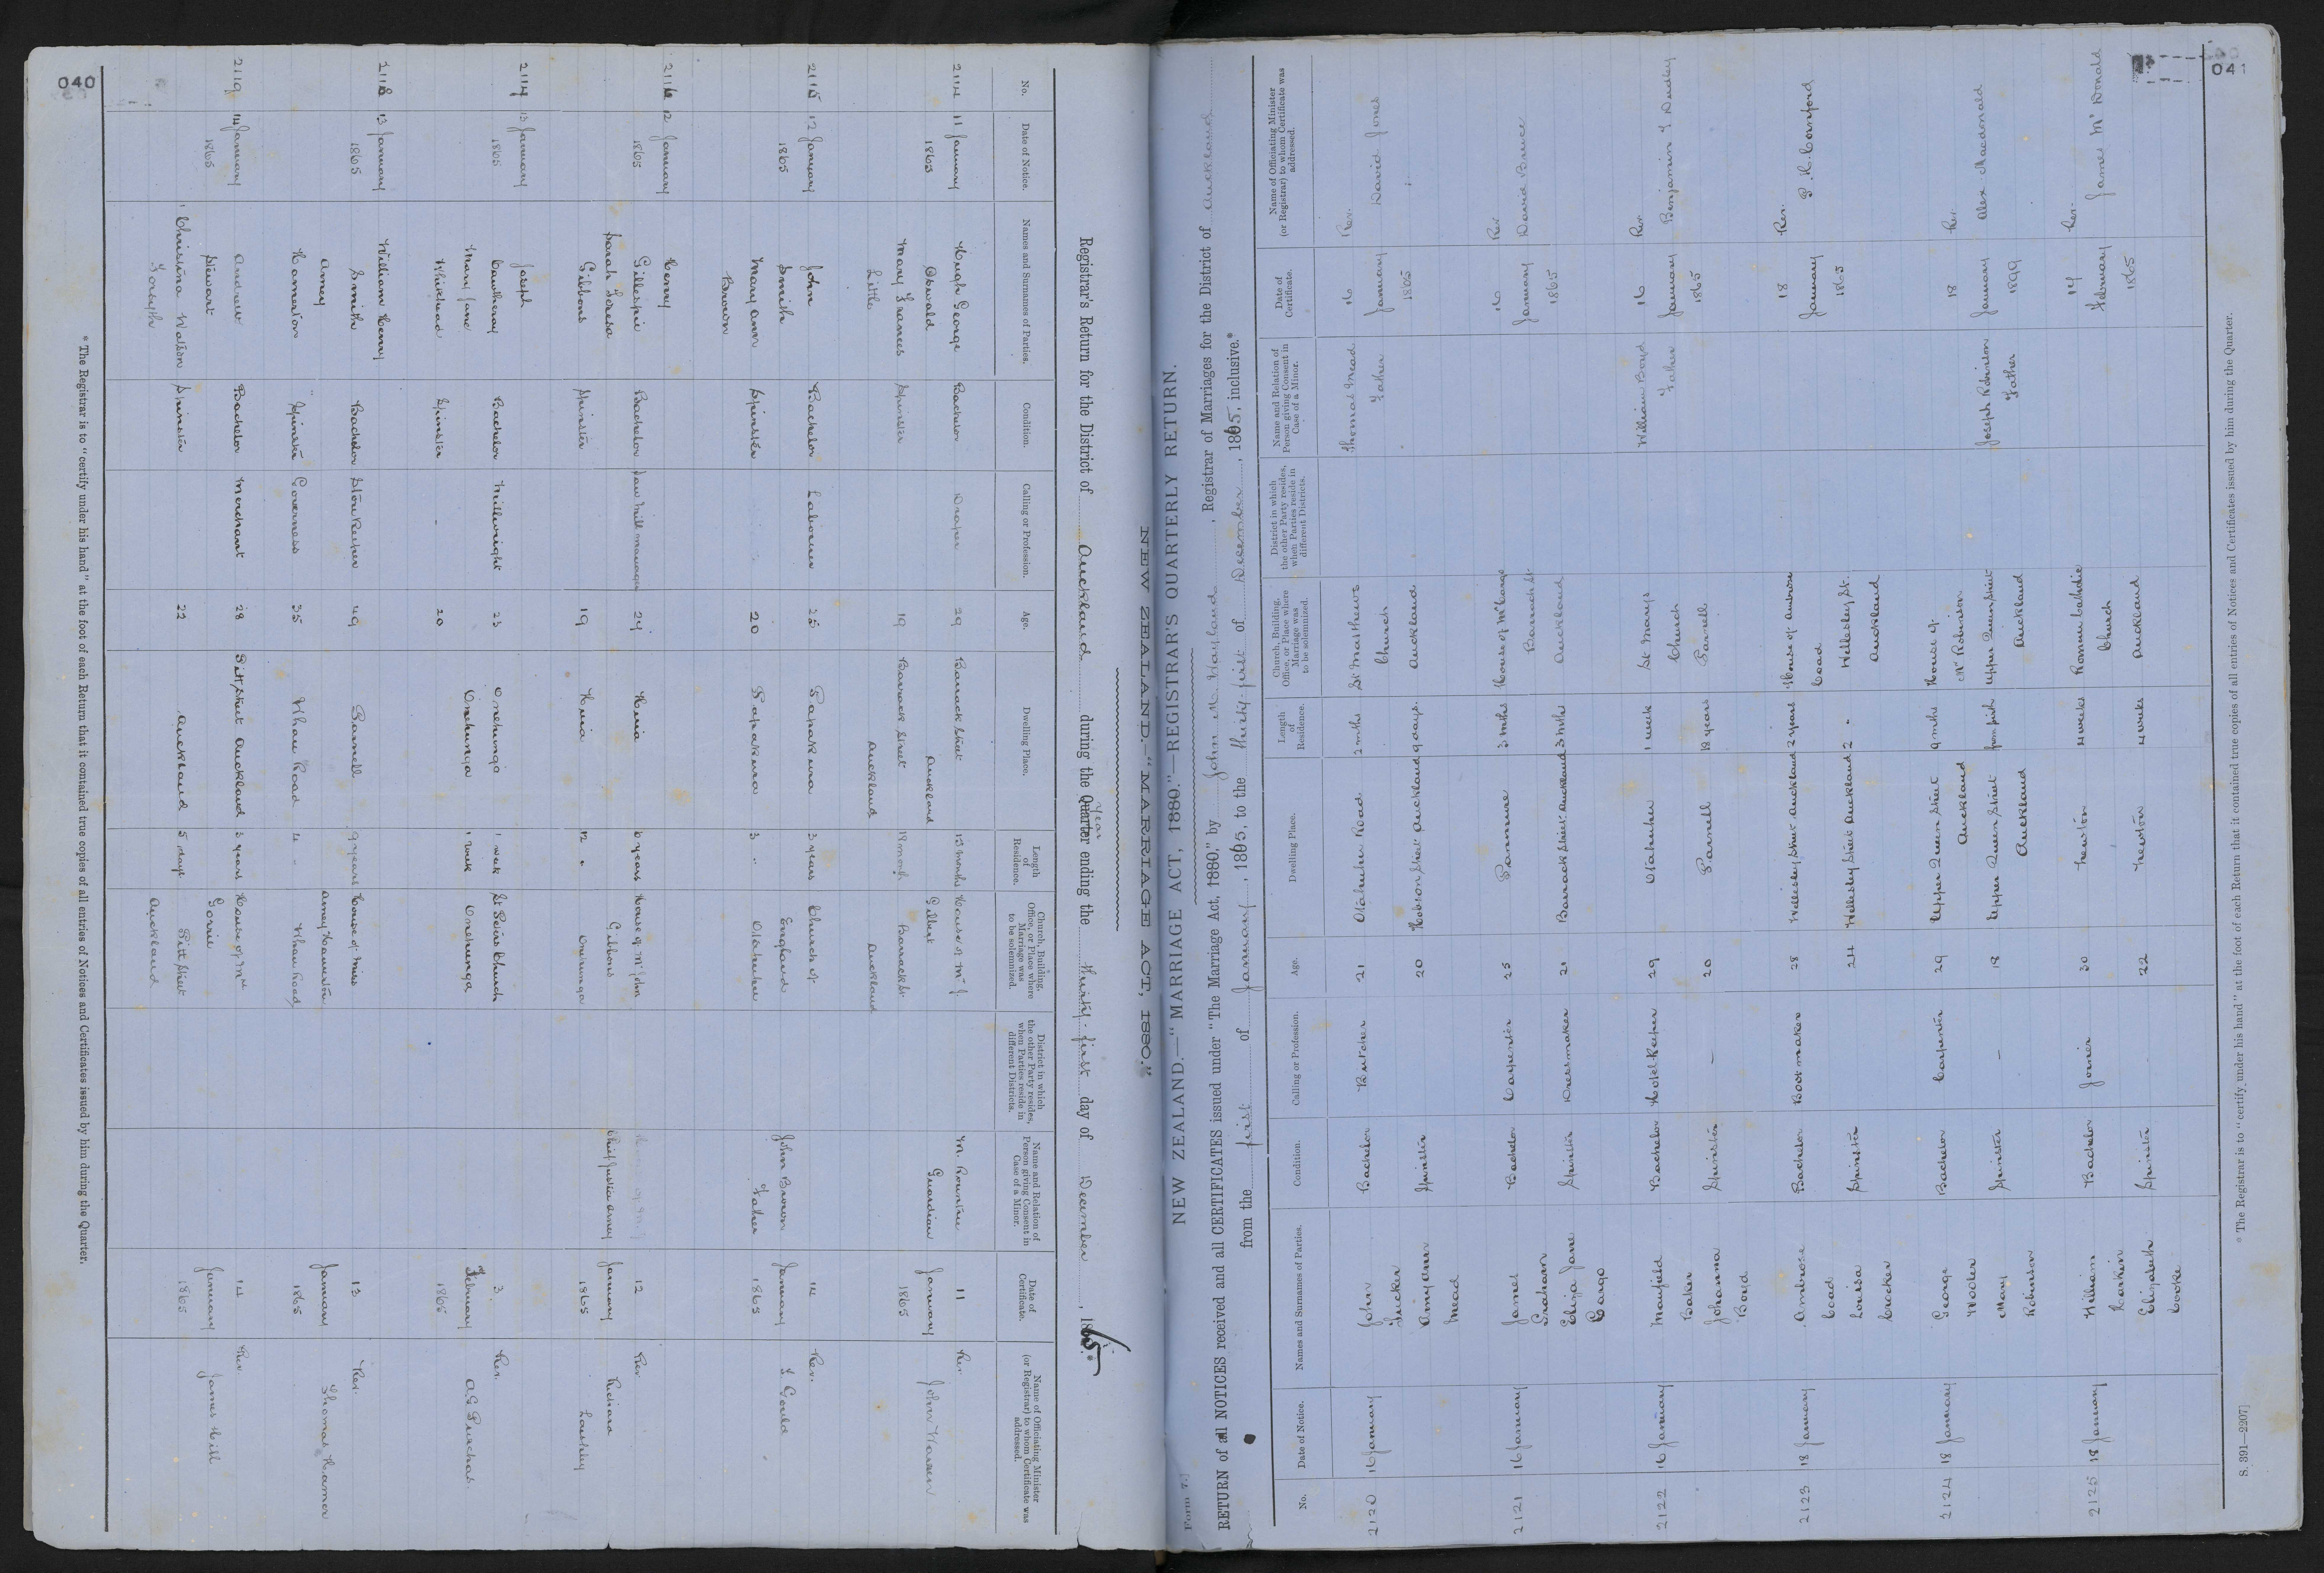 040
NEW ZEALAND.—"MARRIAGE ACT, 1880."
Registrar's Return for the District of Auckland during the Quarter Year ending the thirty-first day of December, 1865.*
No.
Date of Notice.
Names and Surnames of Parties.
Condition.
Calling or Profession.
Age.
Dwelling Place.
Length of Residence.
Church, Building, Office, or Place where Marriage was to be solemnized.
District in which the other Party resides, when Parties reside in different Districts.
Name and Relation of Person giving Consent in Case of a Minor.
Date of Certificate.
Name of Officiating Minister (or Registrar) to whom Certificate was addressed.
2114 11 January 1865
Hugh George Oswald Bachelor Draper 29 Barrack Street Auckland 13 months
Mary Frances Little Spinster 19 Barrack Street Auckland 18 month
House of Mr J. Gilbert Barrack St. Auckland
M. Rountree Guardian
11 January 1865
Rev. John Warren
2115 12 January 1865
John Smith Bachelor Labourer 25 Papakura 3 years
Mary Ann Brown Spinster 20 Papakura 3 "
Church of England Otahuhu
John Brown Father
14 January 1865
Rev. I. Gould
2116 12 January 1865
Henry Gillespie Bachelor Saw Mill manager 24 Huia 6 years
Sarah Teresa Gibbons Spinster 19 Huia 12 "
House of Mr John Gibbons Onehunga
Chief Justice Arney
12 January 1865
Rev. Richard Laishley
2117 13 January 1865
Joseph Cawthray Bachelor Millwright 23 Onehunga 1 week
Mary Jane Whitehead Spinster - 20 Onehunga 1 week
St Peters Church Onehunga
3 February 1865
Rev. A.G. Purchas
2118 13 January 1865
William Henry Smith Bachelor Storekeeper 49 Parnell 9 years
Amey Hamerton Spinster Governess 35 Whau Road 4 "
House of Miss Amey Hamerton Whau Road
13 January 1865
Rev. Thomas Hamer
2119 14 January 1865
Andrew Stewart Bachelor Merchant 28 Pitt Street Auckland 3 years
Christina Watson Forsyth Spinster 22 Auckland 5 days
House of Mr Gorrie Pitt Street Auckland
14 January 1865
Rev. James Hill
* The Registrar is to "certify under his hand" at the foot of each Return that it contained true copies of all entries of Notices and Certificates issued by him during the Quarter.
041
Form 7.]
NEW ZEALAND.—"MARRIAGE ACT, 1880."—REGISTRAR'S QUARTERLY RETURN.
RETURN of all NOTICES received and all CERTIFICATES issued under "The Marriage Act, 1880," by John M. Wayland, Registrar of Marriages for the District of Auckland
from the first of January, 1865, to the thirty-first of December, 1865, inclusive.*
No.
Date of Notice.
Names and Surnames of Parties.
Condition.
Calling or Profession.
Age.
Dwelling Place.
Length of Residence.
Church, Building, Office, or Place where Marriage was to be solemnized.
District in which the other Party resides, when Parties reside in different Districts.
Name and Relation of Person giving Consent in Case of a Minor.
Date of Certificate.
Name of Officiating Minister (or Registrar) to whom Certificate was addressed.
2120 16 January
John Tucker Bachelor Butcher 21 Otahuhu Road 2 mths
Amy Ann Mead Spinster 20 Hobson Street Auckland 9 days.
St Matthews Church Auckland
Thomas Mead Father
16 January 1865
Rev. David Jones
2121 16 January
James Graham Bachelor Carpenter 25 Panmure 3 mths
Eliza Jane Cargo Spinster Dressmaker 21 Barrack Street Auckland 3 mths
House of Mr Cargo Barrack St. Auckland
16 January 1865
Rev. David Bruce
2122 16 January
Mayfield Baker Bachelor Hotelkeeper 29 Otahuhu 1 week
Johanna Boyd Spinster - 20 Parnell 18 years
St Marys Church Parnell
William Boyd Father
16 January 1865
Rev. Benjamin T Dudley
2123 18 January
Ambrose Coad Bachelor Bootmaker 28 Wellesley Street Auckland 2 years
Louisa Crocker Spinster 24 Wellesley Street Auckland 2 -
House of Ambrose Coad Wellesley St. Auckland
18 January 1865
Rev. P. R. Cornford
2124 18 January
George Bachelor Carpenter 29 Upper Queen Street Auckland 9 mths
Mary Robinson Spinster - 18 Upper Queen Street Auckland from birth
House of Mr Robinson Upper Queen Street Auckland
Joseph Robinson Father
18 January 1899
Rev. Alex Macdonald
2125 18 January
William Harkin Bachelor Joiner 30 Newton 4 weeks
Elizabeth Cooke Spinster 22 Newton 4 weeks
Roman Catholic Church Auckland
14 February 1865
Rev. James McDonald
* The Registrar is to "certify under his hand" at the foot of each Return that it contained true copies of all entries of Notices and Certificates issued by him during the Quarter.
S. 391—2207]